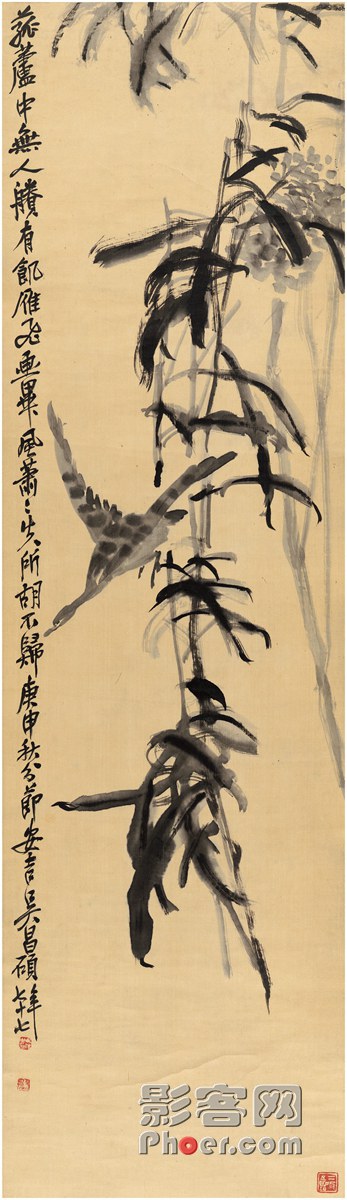 菰蘆中無人賸有飢雁飛画畢風蕭ミ失所胡不歸庚申秋分節安吉吳昌碩年七十七
影客网
Phoer.com